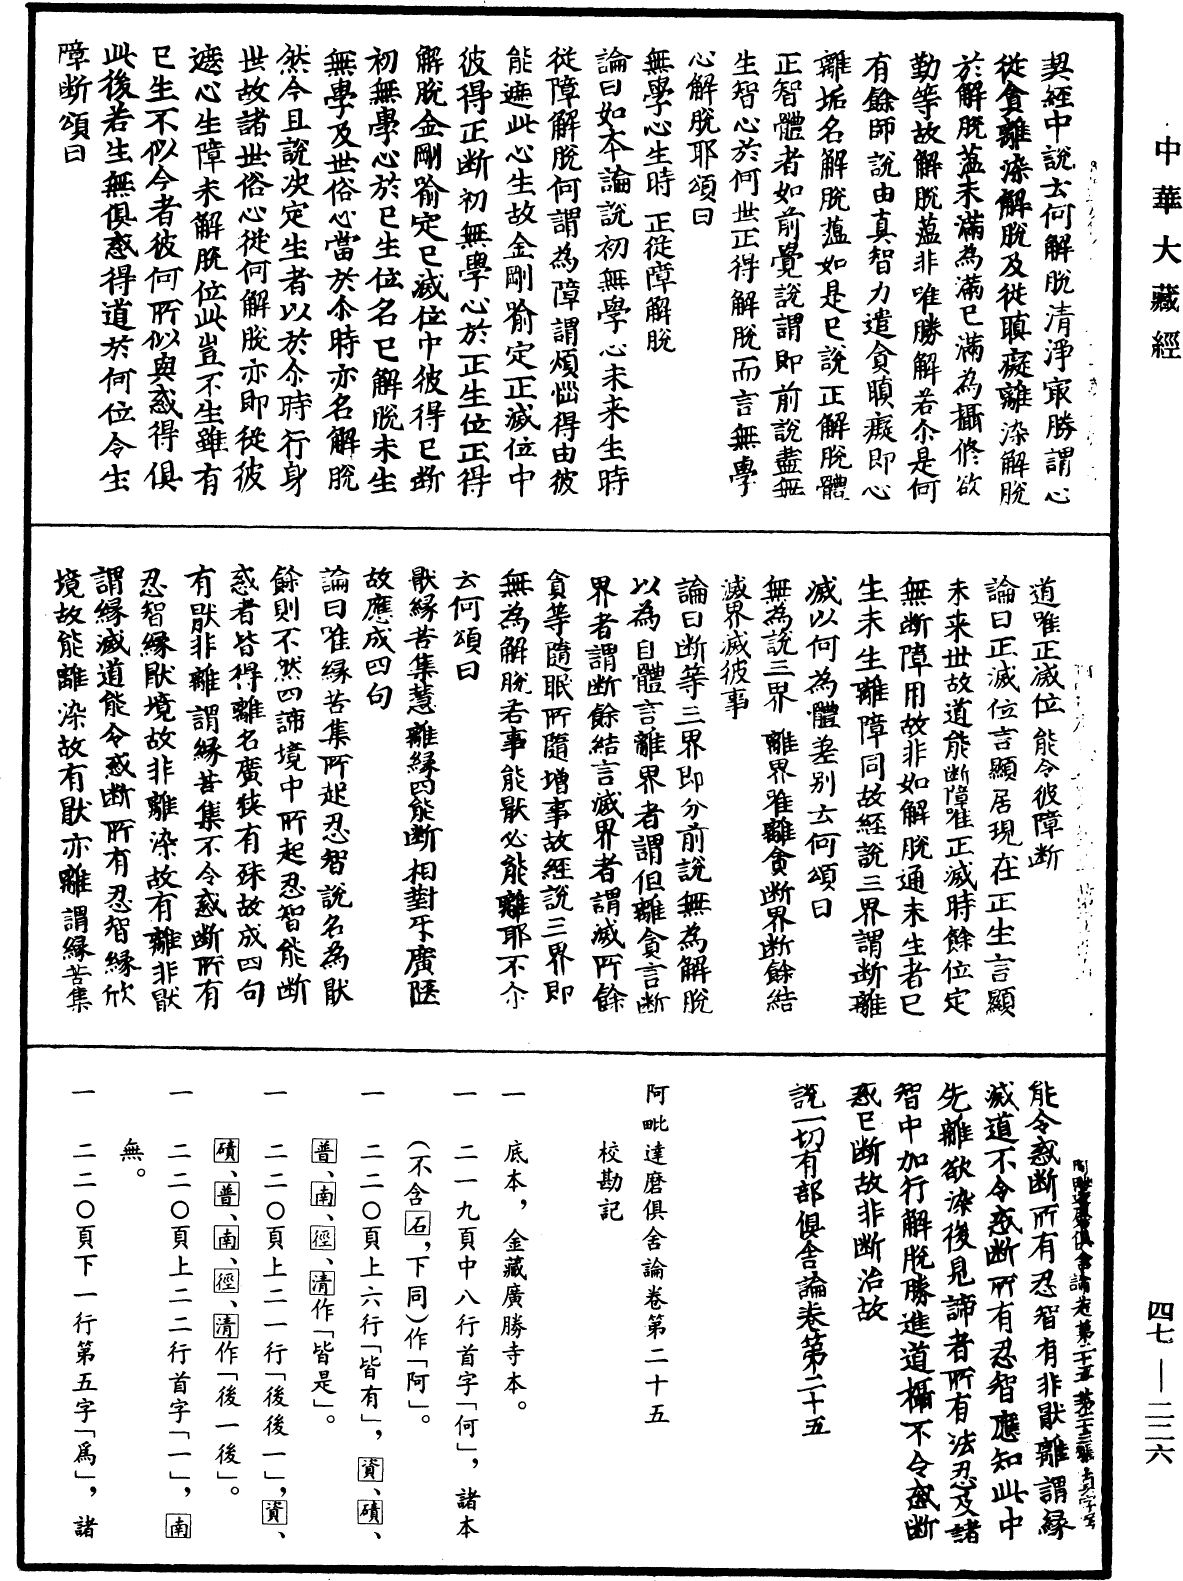 中華大藏經
契經中說云何解脫清淨㝡勝謂心
從貪離染解脫及從瞋癡離染解脫
於解脫蘊未滿為滿已滿為攝修欲
勤等故解脫蘊非唯勝解若尒是何
有餘師說由真智力遣貪瞋癡即心
離垢名解脫蘊如是已說正解脫體
正智體者如前覺說謂即前說盡無
生智心於何世正得解脫而言無學
心解脫耶頌曰
無學心生時 正從障解脫
論曰如本論說初無學心未來生時
從障解脫何謂為障謂煩惱得由彼
能遮此心生故金剛喻定正滅位中
彼得正斷初無學心於正生位正得
解脫金剛喻定已滅位中彼得已斷
初無學心於已生位名已解脫未生
無學及世俗心當於尒時亦名解脫
然今且說決定生者以於尒時行身
世故諸世俗心從何解脫亦即從彼
遮心生障未解脫位此豈不生雖有
已生不似今者彼何所似與惑得俱
此後若生無俱惑得道於何位令生
障斷頌曰
道唯正滅位 能令彼障斷
論曰正滅位言顯居現在正生言顯
未来世故道能斷障唯正滅時餘位定
無斷障用故非如解脫通未生者已
生未生離障同故經說三界謂斷離
滅以何為體差别云何頌曰
無為說三界 離界唯離貪斷界斷餘結
滅界滅彼事
論曰斷等三界即分前說無為解脫
以為自體言離界者謂但離貪言斷
界者謂斷餘結言滅界者謂滅所餘
貪等隨眠所隨增事故經說三界即
無為解脫若事能猒必能離耶不尒
云何頌曰
猒緣苦集慧 離緣四能斷 相對互廣陿
故應成四句
論曰唯緣苦集所起忍智說名為猒
餘則不然四諦境中所起忍智能斷
惑者皆得離名廣狹有殊故成四句
有猒非離謂緣苦集不令惑斷所有
忍智緣猒境故非離染故有離非猒
謂緣滅道能令惑斷所有忍智緣欣
境故能離染故有猒亦離謂緣苦集
能令惑斷所有忍智有非猒離謂緣
滅道不令惑斷所有忍智應知此中
先離欲染後見諦者所有法忍及諸
智中加行解脫勝進道攝不令惑斷
惑已斷故非斷治故
說一切有部俱舍論卷第二十五
阿毗達磨俱舍論卷第二十五
校勘記
一 底本，金藏廣勝寺本。
一 二一九頁中八行首字「何」，諸本
（不含石，下同）作「阿」。
一 二二〇頁上六行「皆有」，資、磧、
普、南、徑、清作「皆是」。
一 二二〇頁上二一行「後後一」，資、
磧、普、南、徑、清作「後一後」。
一 二二〇頁上二二行首字「一」，南
無。
一 二二〇頁下一行第五字「爲」，諸
四七—二二六